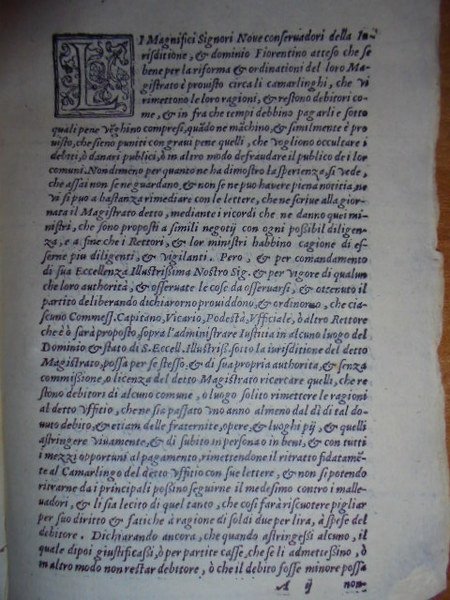 LI Magnifici Signori Noue conseruadori della Iu-
risditione, & dominio Fiorentino atteso che se
bene per la riforma & ordinationi del loro Ma-
gistrato è prouisto circa li camarlinghi, che vi
rimettono le loro ragioni, & restono debitori co-
me, & in fra che tempi debbino pagarli e sotto
quali pene vẽghino compresi, quãdo ne mãchino, & similmente è pro
uisto, che sieno puniti con graui pene quelli, che vogliono occultare i
debiti, ò danari publici, ò in altro modo defraudare il publico de i lor
comuni. Nondimeno per quanto ne ha dimostro la sperienza, si vede,
che assai non se ne guardano, & non se ne puo hauere piena notitia, ne
vi si puo a bastanza rimediare con le lettere, che ne scriue alla gior-
nata il Magistrato detto, mediante i ricordi che ne danno quei mi-
nistri, che sono proposti a simili negotij con ogni possibil diligen-
za, e a fine che i Rettori, & lor ministri habbino cagione di es-
serne piu diligenti, & vigilanti. Pero, & per comandamento
di sua Eccellenza Illustrissima Nostro Sig. & per vigore di qualun
che loro authorità, & osseruate le cose da osseruarsi, & ottenuto il
partito deliberando dichiarorno prouiddono, & ordinorno, che cia-
scuno Commess. Capitano, Vicario, Podestà, Vfficiale, ò altro Rettore
che è ò sarà proposto, sopra l'administrare Iustitia in alcuno luogo del
Dominio & stato di S. Eccell. Illustriss. sotto la iurisditione del detto
Magistrato, possa per se stesso, & di sua propria authorita, & senza
commissione, o licenza del detto Magistrato ricercare quelli, che re
stono debitori di alcuno comune, o luogo solito rimettere le ragioni
al detto Vffitio, che ne sia passato vno anno almeno dal dì di tal do
nuto debito, & etiam delle fraternite, opere, & luoghi pij, & quelli
astringere viuamente, & di subito in persona o in beni, & con tutti
i mezzi opportuni al pagamento, rimettendone il ritratto fidatamẽ-
te al Camarlingo del detto Vffitio con sue lettere, & non si potendo
ritrarne da i principali possino seguirne il medesimo contro i malle-
uadori, & li sia lecito di quel tanto, che cosi farà riscuotere pigliar
per suo diritto & fatiche à ragione di soldi due per lira, à spese del
debitore. Dichiarando ancora, che quando astringessi alcuno, il
quale dipoi giustificassi, ò per partite casse, che se li admettessino, ò
in altro modo non restar debitore, ò che il debito fosse minore possa
A ij non-